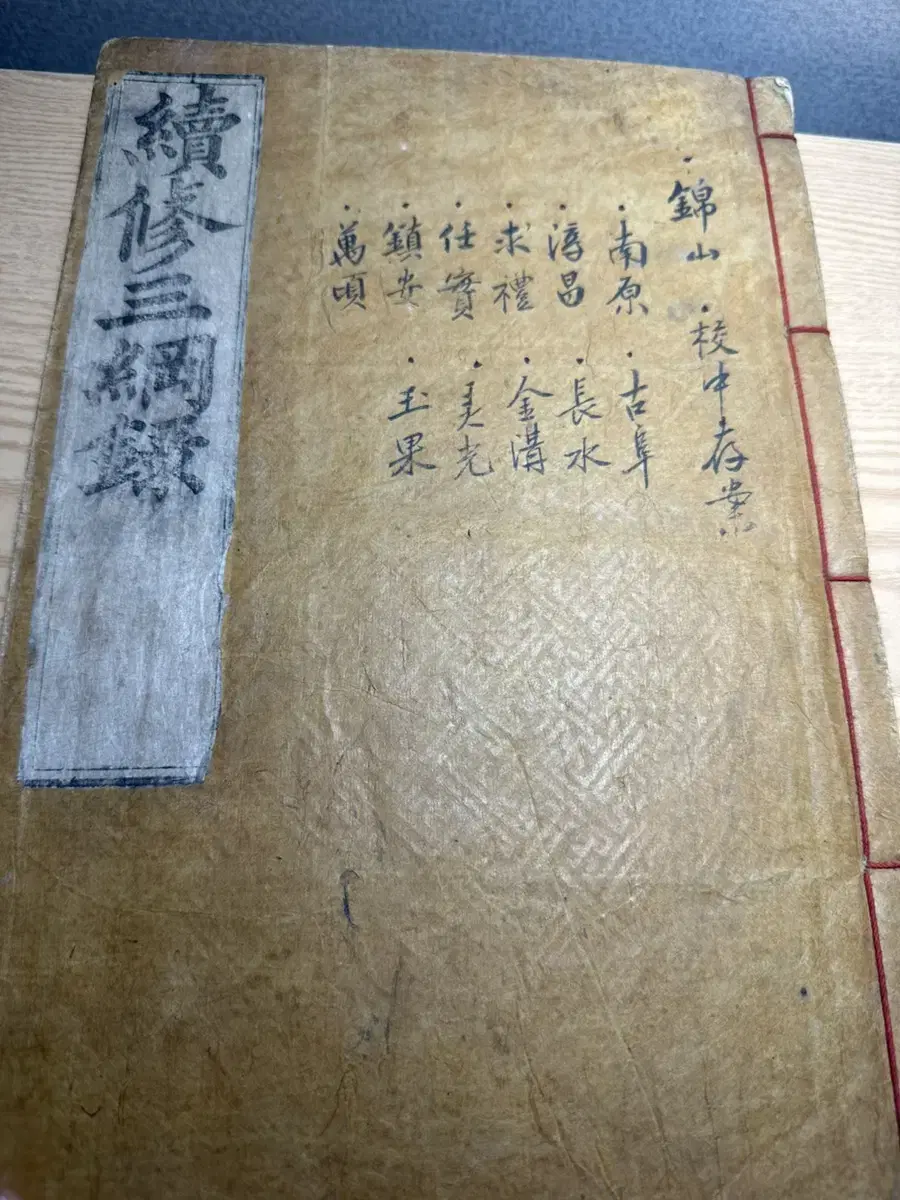 錦山
校中存案
南原
古阜
淳昌
長水
求禮
金溝
任實
灵光
鎮安
玉果
萬頃
續修三綱錄